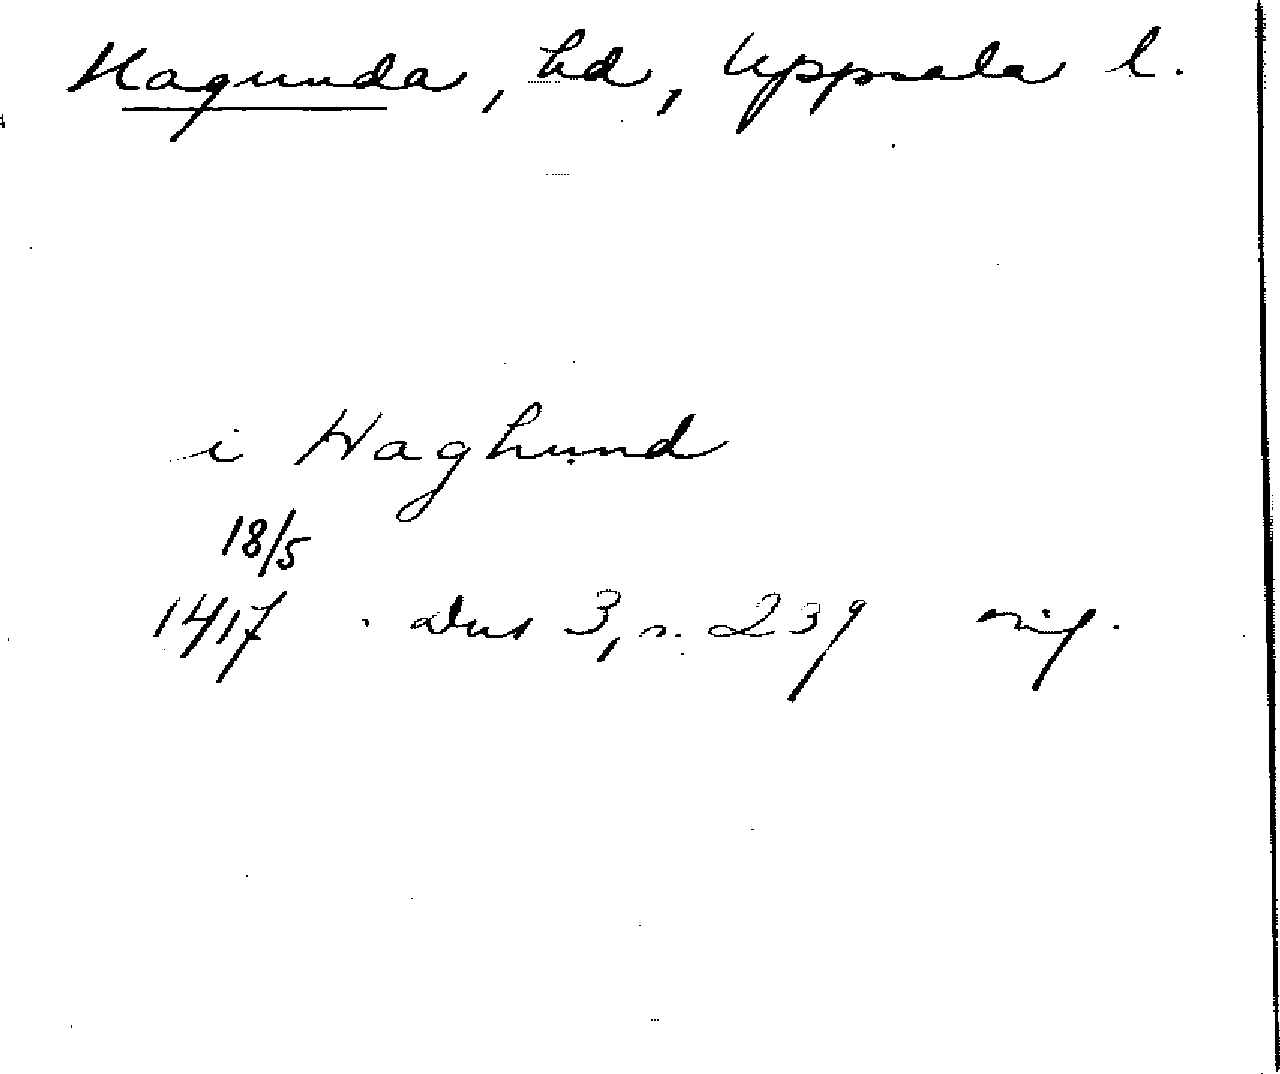 Hagunda, hd, Uppsala l.
i Haghund
18/5
1417. Dns 3, s. 239 orig.